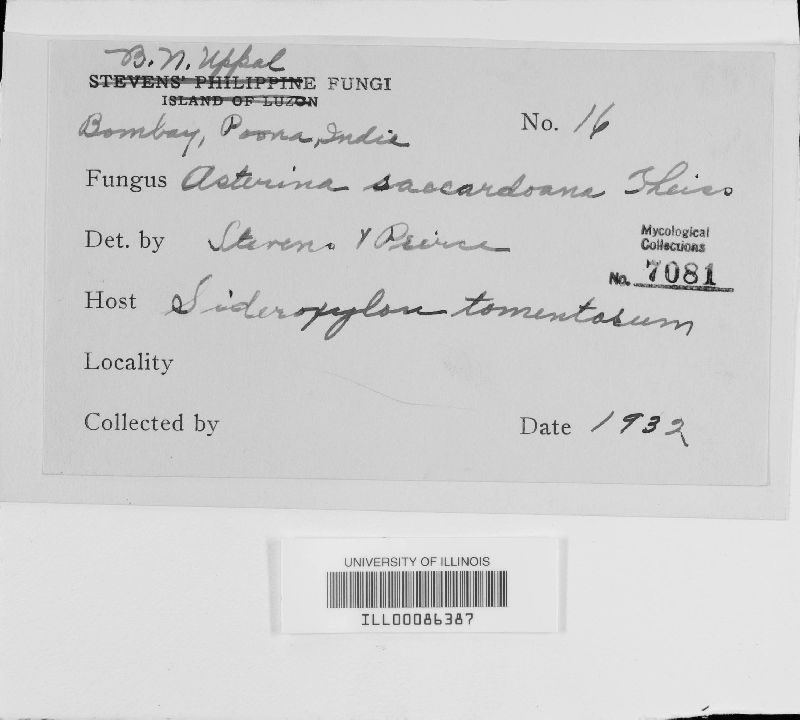 B. N. Uppal
STEVENS' PHILIPPINE FUNGI
ISLAND OF LUZON
Bombay, Poona, India
No. 16
Fungus Asterina saccardoana Theiss
Det. by Stevens & Peirce
Mycological
Collections
No. 7081
Host Sideroxylon tomentosum
Locality
Collected by
Date 1932
UNIVERSITY OF ILLINOIS
ILL00086387